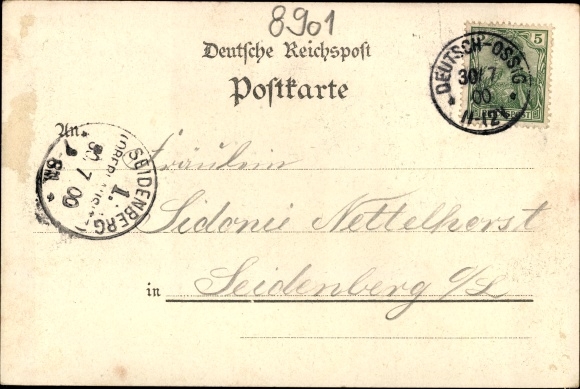 8901
Deutsche Reichspost
Postkarte
5
DEUTSCH-OSSIG
30/7
00
11-12V
An
SEIDENBERG
1.
30.7.00
8-9N
Fräulein
Sidonie Nettelhorst
in Seidenberg o/L